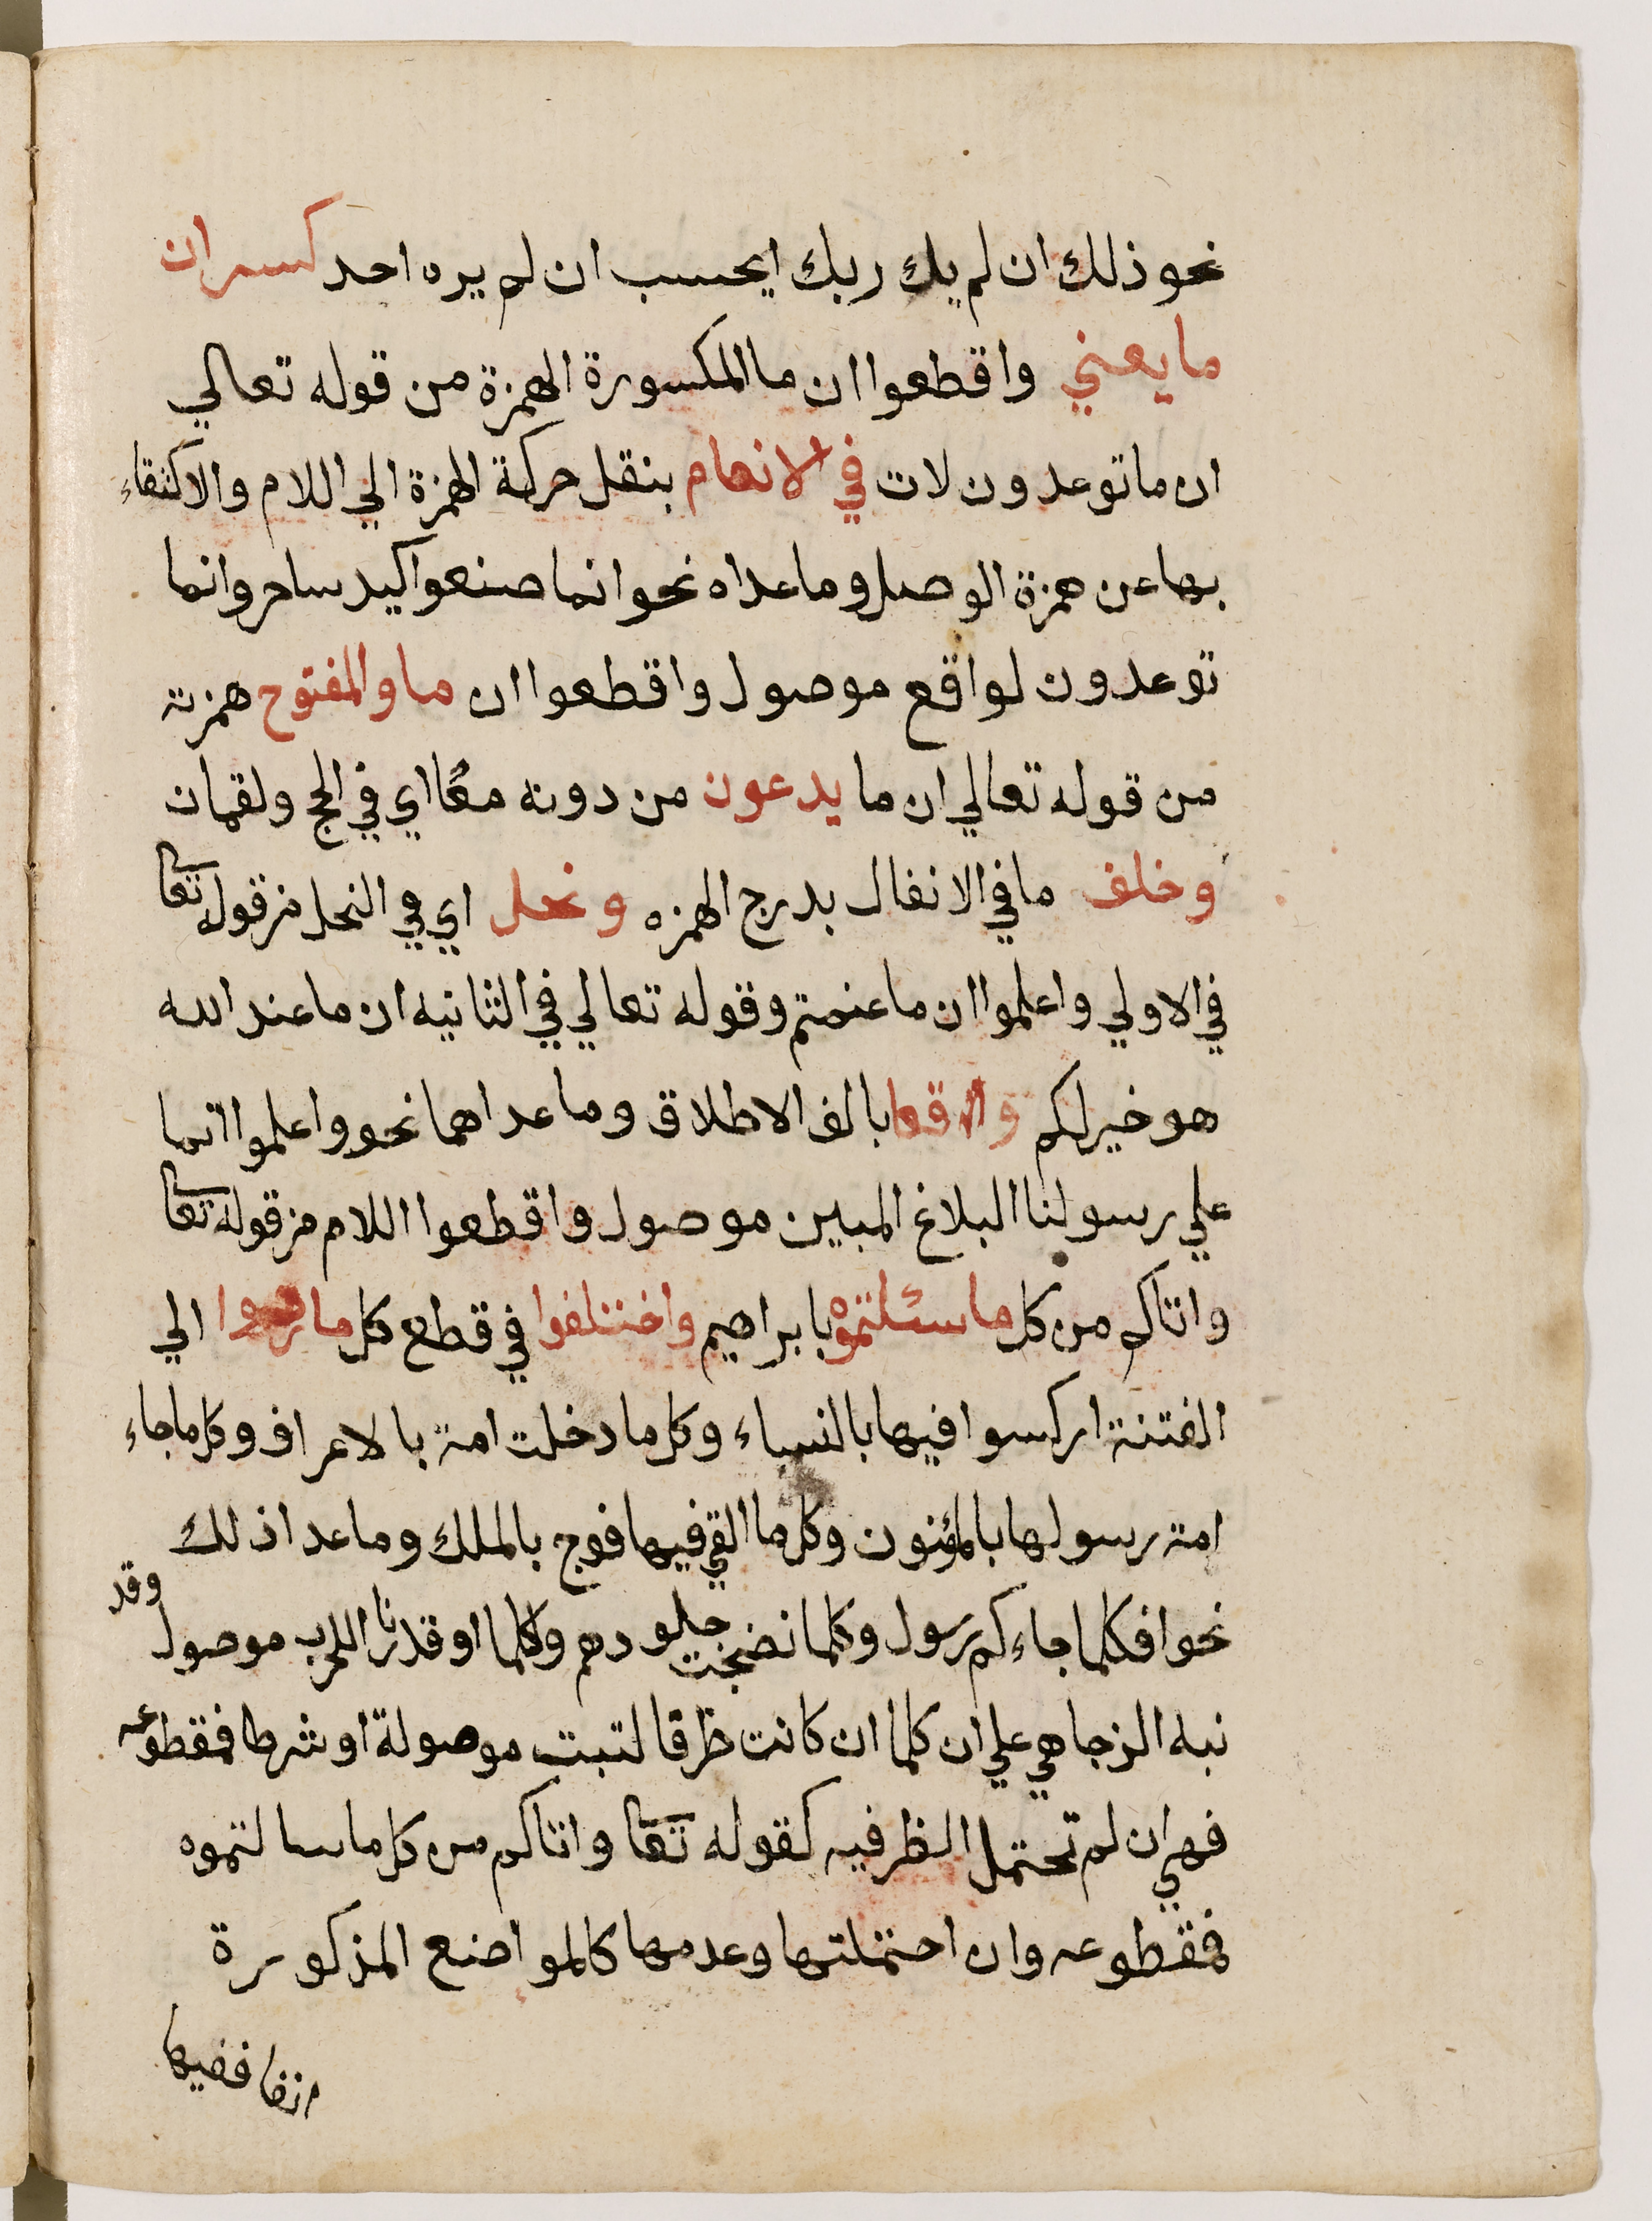 نحو ذلك ان لم يك ربك ايحسب ان لم يره احد كسر ان
ما يعني واقطعوا ان ما المكسورة الهمزة من قوله تعالي
ان ما توعدون لات في الانعام بنقل حركة الهمزة الي اللام والاكتفاء
بها عن همزة الوصل وما عداه نحو انما صنعوا كيد ساحر وانما
توعدون لواقع موصول واقطعوا ان ما والمفتوح همزته
من قوله تعالي ان ما يدعون من دونه معًا اي في الحج ولقمان
وخلف ما في الانفال بدرج الهمزه ونحل اي في النحل من قوله تعا
في الاولي واعلموا ان ما غنمتم وقوله تعالي في الثانيه ان ما عند الله
هو خير لكم وقعا بالف الاطلاق وما عداهما نحو واعلموا انما
علي رسولنا البلاغ المبين موصول واقطعوا اللام من قوله تعا
واتاكم من كل ما سئلتموه بابراهيم واختلفوا في قطع كل ما ردوا الي
الفتنة اركسوا فيها بالنساء وكل ما دخلت امة بالاعراف وكل ما جاء
امة رسولها بالمؤمنون وكل ما القي فيها فوج بالملك وما عدا ذلك
نحو افكلما جاءكم رسول وكلما نضجت جلودهم وكلما اوقدوا نارا للحرب موصول وقد
نبه الزجاجي علي ان كلما ان كانت ظرفا كتبت موصولة او شرطا فمقطوعه
فهي ان لم تحتمل الظرفيه كقوله تعا واتاكم من كل ما سالتموه
فمقطوعه وان احتملتها وعدمها كالمواضع المذكورة
انفا ففيها